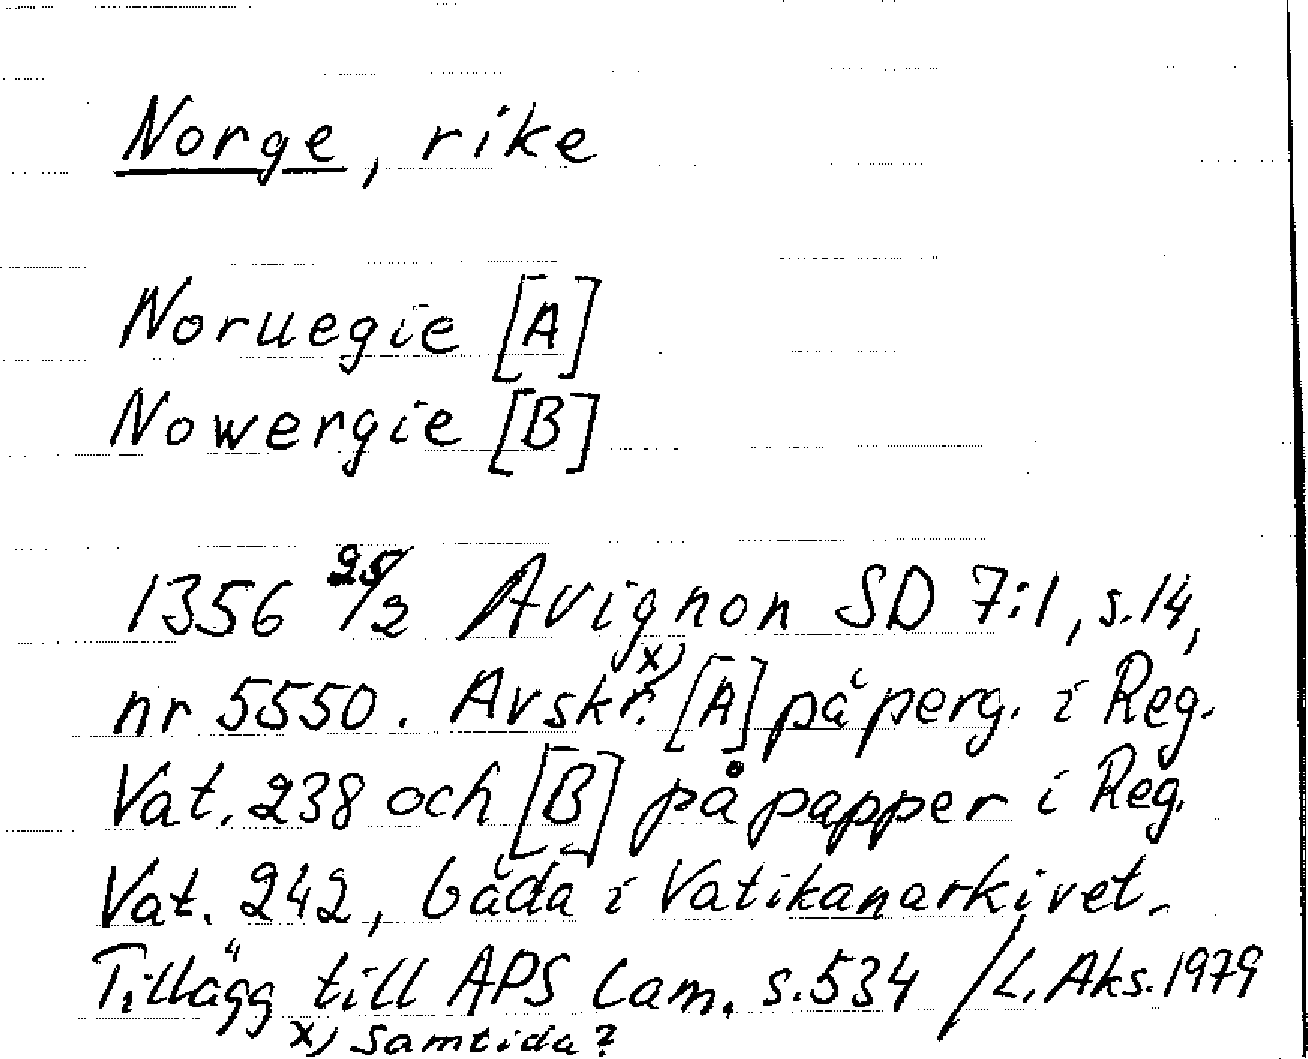 Norge, rike
Noruegie [A]
Nowergie [B]
1356 25/2 Avignon SD 7:1, s.14,
nr 5550. Avskr. x) [A] på perg. i Reg.
Vat. 238 och [B] på papper i Reg.
Vat. 242, båda i Vatikanarkivet.
Tillägg till APS Cam. s.534 /L. Aks. 1979
x) Samtida?